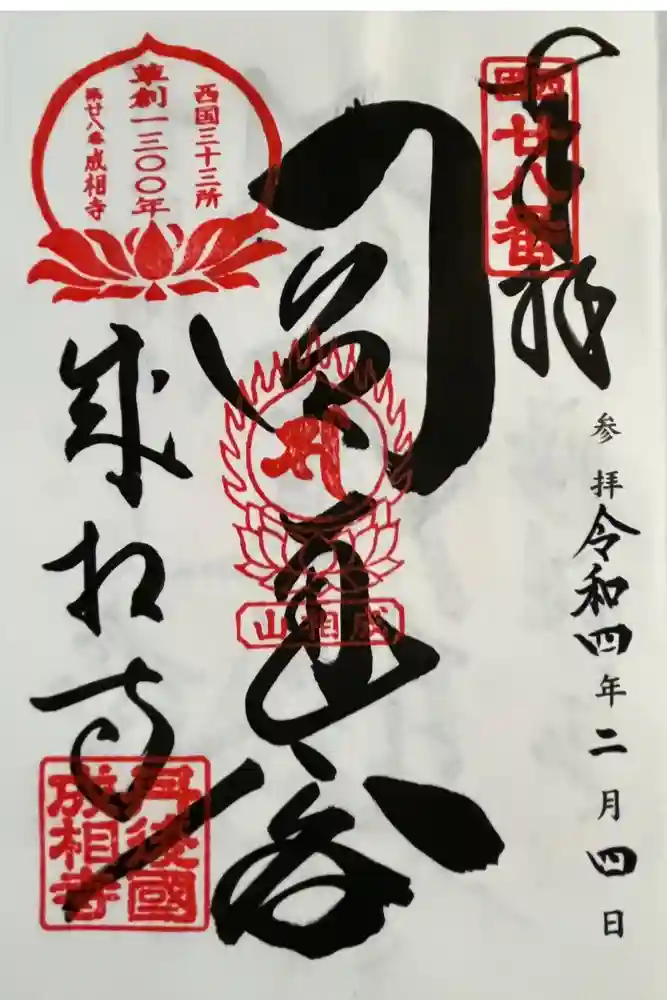 奉拝
西国
廿八番
参拝 令和四年二月四日
成相山
西国三十三所
草創一三〇〇年
第廿八番 成相寺
成相寺
丹後國
成相寺